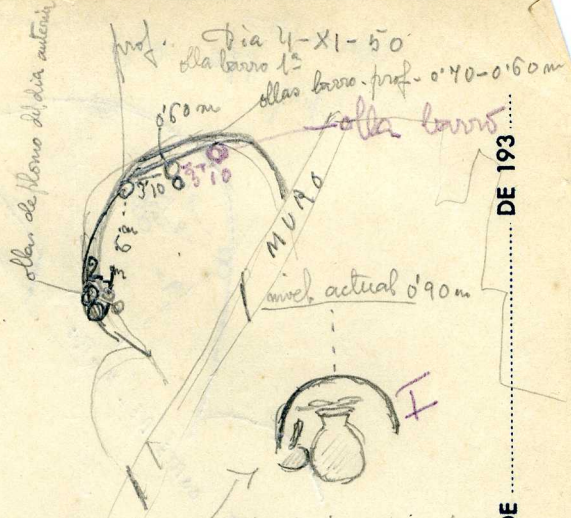 prof. Dia 4-XI-50
olla barro 1ª
ollas barro. prof. 0'70-0'60 m
0'60 m
olla barro
ollas de plomo del dia anterior
3'10
3'10
MURO
nivel actual 0'90 m
I
DE 193
DE